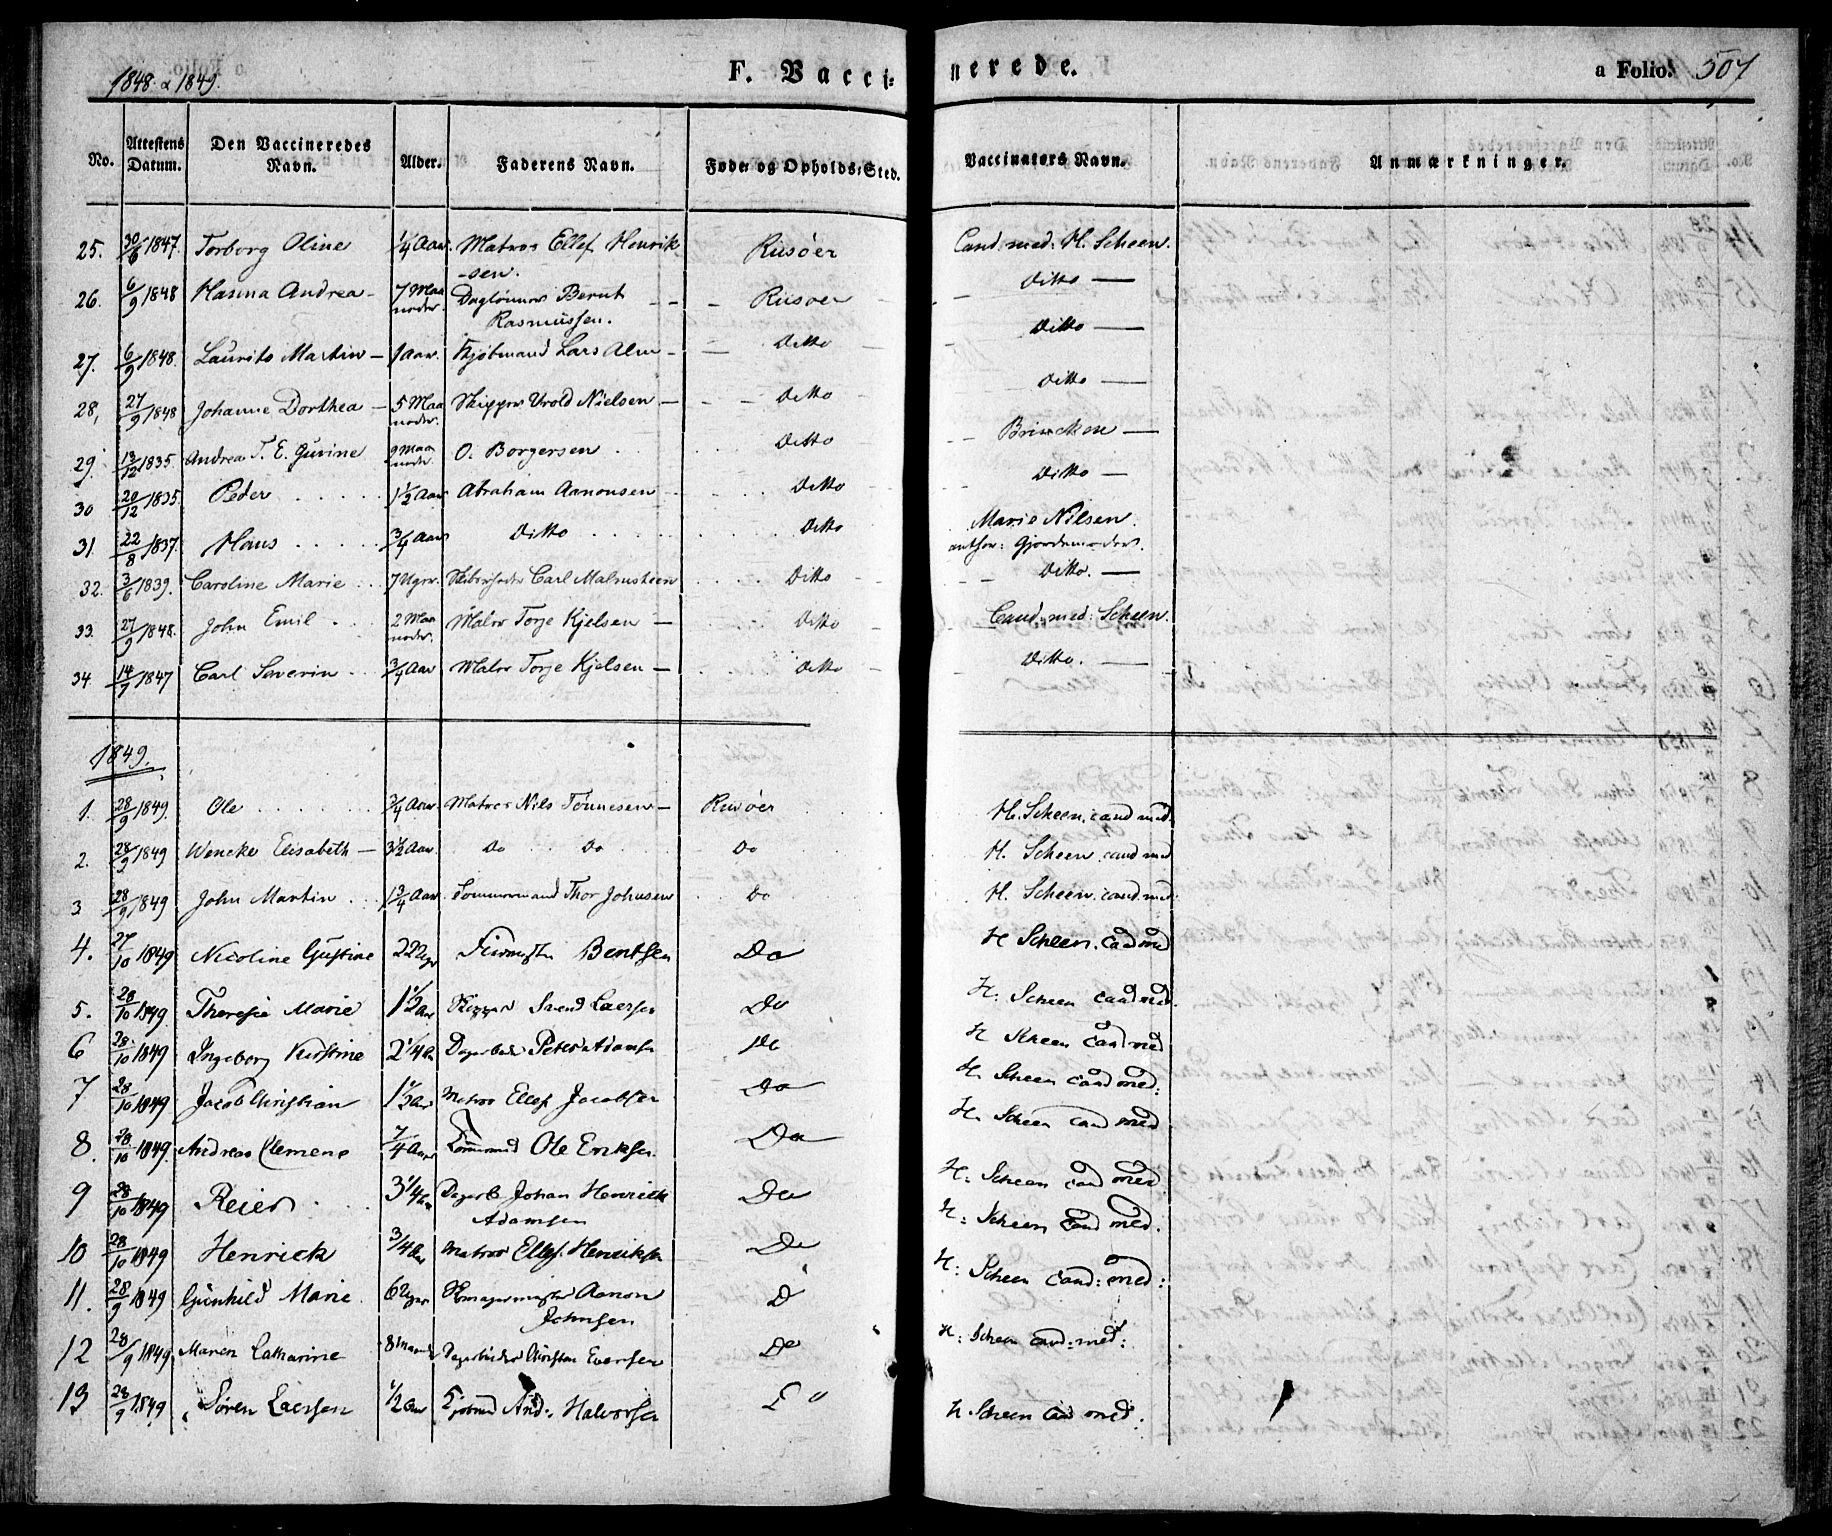 1848 & 1849.
F. Vaccinerede.
a Folio. 507
No. Attestens Datum. Den Vaccineredes Navn. Alder. Faderens Navn. Føde- og Opholds-Sted. Vaccinators Navn. Anmærkninger.
25. 30/6 1847. Torborg Oline 1/4 Aar. Matros Ellef Henrik- Riisøer Cand. med: H. Scheen.
-sen.
26. 6/9 1848 Hanna Andrea 7 Maa Daglønner Bernt Riisøer Ditto
noder. Rasmussen.
27. 6/9 1848. Laurits Martin 1 Aar. Kjøbmand Lars Alm Ditto Ditto
28. 27/9 1848 Johanne Dorthea 5 Maa Skipper Urold Nielsen Ditto Ditto
noder.
29. 13/12 1835 Andrea T. E. Gurine 9 Maa O. Borgersen Ditto Brincken
noder.
30 20/12 1835. Peder 1 1/2 Aar Abraham Aanonsen Ditto Ditto
31. 22/8 1837. Hans 3/4 Aar Ditto Ditto Marie Nilsen.
author: Gjordemoder.
32. 3/6 1839. Caroline Marie 7 Uger. Skibsreder Carl Malmsteen Ditto Ditto.
33. 27/9 1848. John Emil 2 Maa Matros Torje Kjelsen Ditto Cand: med: Scheen.
noder.
34 14/7 1847 Carl Severin 3/4 Aar Matros Torje Kjelsen Ditto Ditto.
1849.
1. 28/9 1849. Ole 3/4 Aar. Matros Nils Tønnesen Riisøer H. Scheen. cand med:
2. 28/9 1849 Wencke Elisabeth 3 1/2 Aar Do Do Do H. Scheen. cand med
3 28/9 1849 John Martin 1 3/4 Aar Tømmermand Thor Johnsen Do H. Scheen. cand. med.
4. 27/10 1849 Nicoline Gustine 22 Uger Bentsen Do H Scheen. cand med
5. 28/10 1849. Theresie Marie 1 1/2 Aar Skipper Svend Laersen Do H: Scheen cand med.
6 28/10 1849 Ingeborg Kirstine 2 1/4 Aar Dagarbeider Peter Adamsen Do H Scheen cand med
7 28/10 1849 Jacob Christian 1 1/2 Aar Matros Ellef Jacobsen Do H. Scheen cand med:
8. 28/10 1849. Andreas Clemens 7/4 Aar Tømmermand Ole Eriksen Do H. Scheen cand med
9 28/10 1849 Reier 3 1/4 Aar Dagarb. Johan Henrick Do H: Scheen cand med.
Adamsen
10 28/10 1849 Henrick 3/4 Aar Matros Ellef Henriksen Do H: Scheen cand med.
11. 28/9 1849 Gunhild Marie 6 Uger Aanon D H: Scheen cand: med:
Johnsen
12 28/9 1849 Maren Catharine 8 Maaneder Dagarbeider Christen Evensen Do H: Scheen cand: med:
13 28/9 1849 Søren Laersen 1/2 Aar And: Halvorsen H. Scheen cand med: